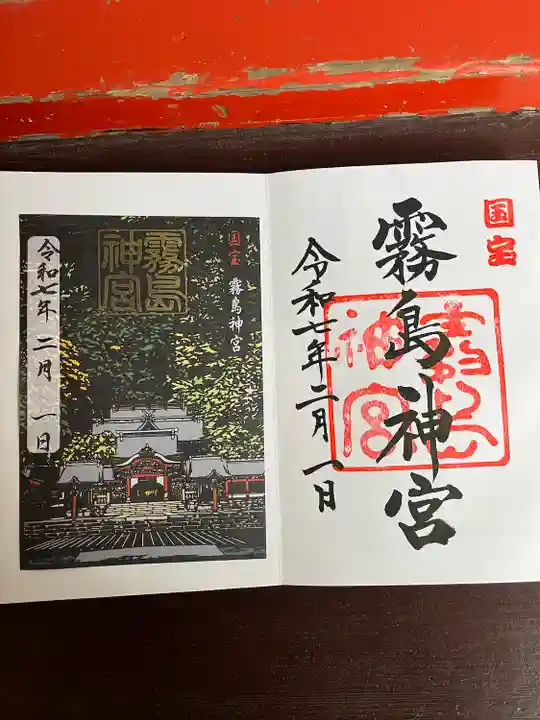 国宝
霧島神宮
霧島神宮
令和七年二月一日
国宝
霧島神宮
霧島神宮
令和七年二月一日